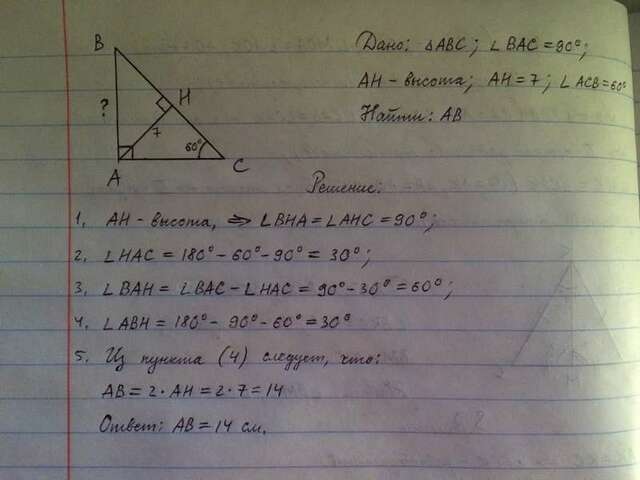 B
H
?
7
60°
A
C
Дано: △ABC; ∠BAC = 90°;
AH - высота; AH = 7; ∠ACB = 60°
Найти: AB
Решение:
1. AH - высота, ⇒ ∠BHA = ∠AHC = 90°;
2. ∠HAC = 180° - 60° - 90° = 30°;
3. ∠BAH = ∠BAC - ∠HAC = 90° - 30° = 60°;
4. ∠ABH = 180° - 90° - 60° = 30°
5. Из пункта (4) следует, что:
AB = 2 · AH = 2 · 7 = 14
Ответ: AB = 14 см.